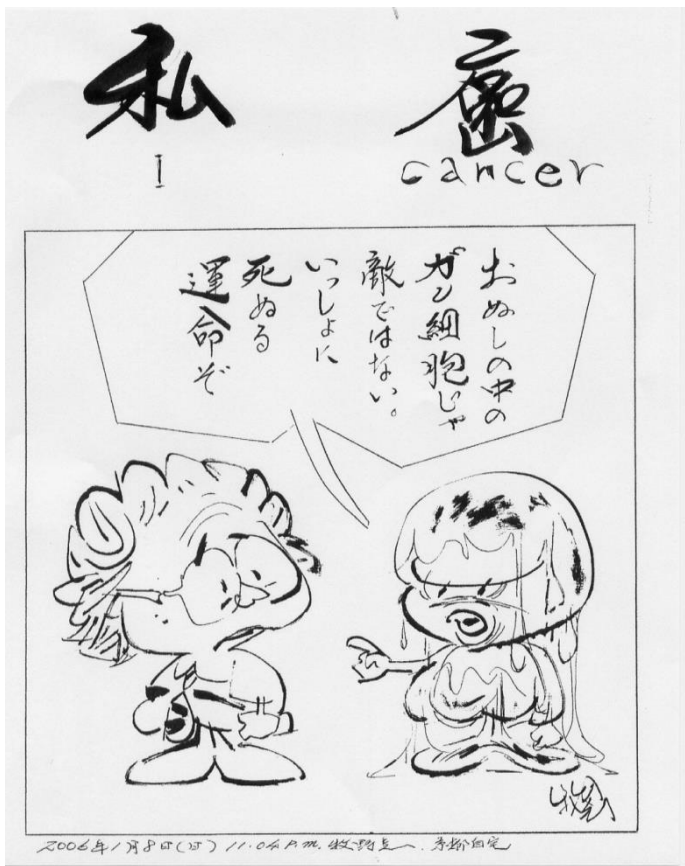 私 癌
I cancer
おぬしの中の
ガン細胞じゃ
敵ではない。
いっしょに
死ぬる
運命ぞ
2006年1月8日(日) 11.04 P.M. 京都自宅